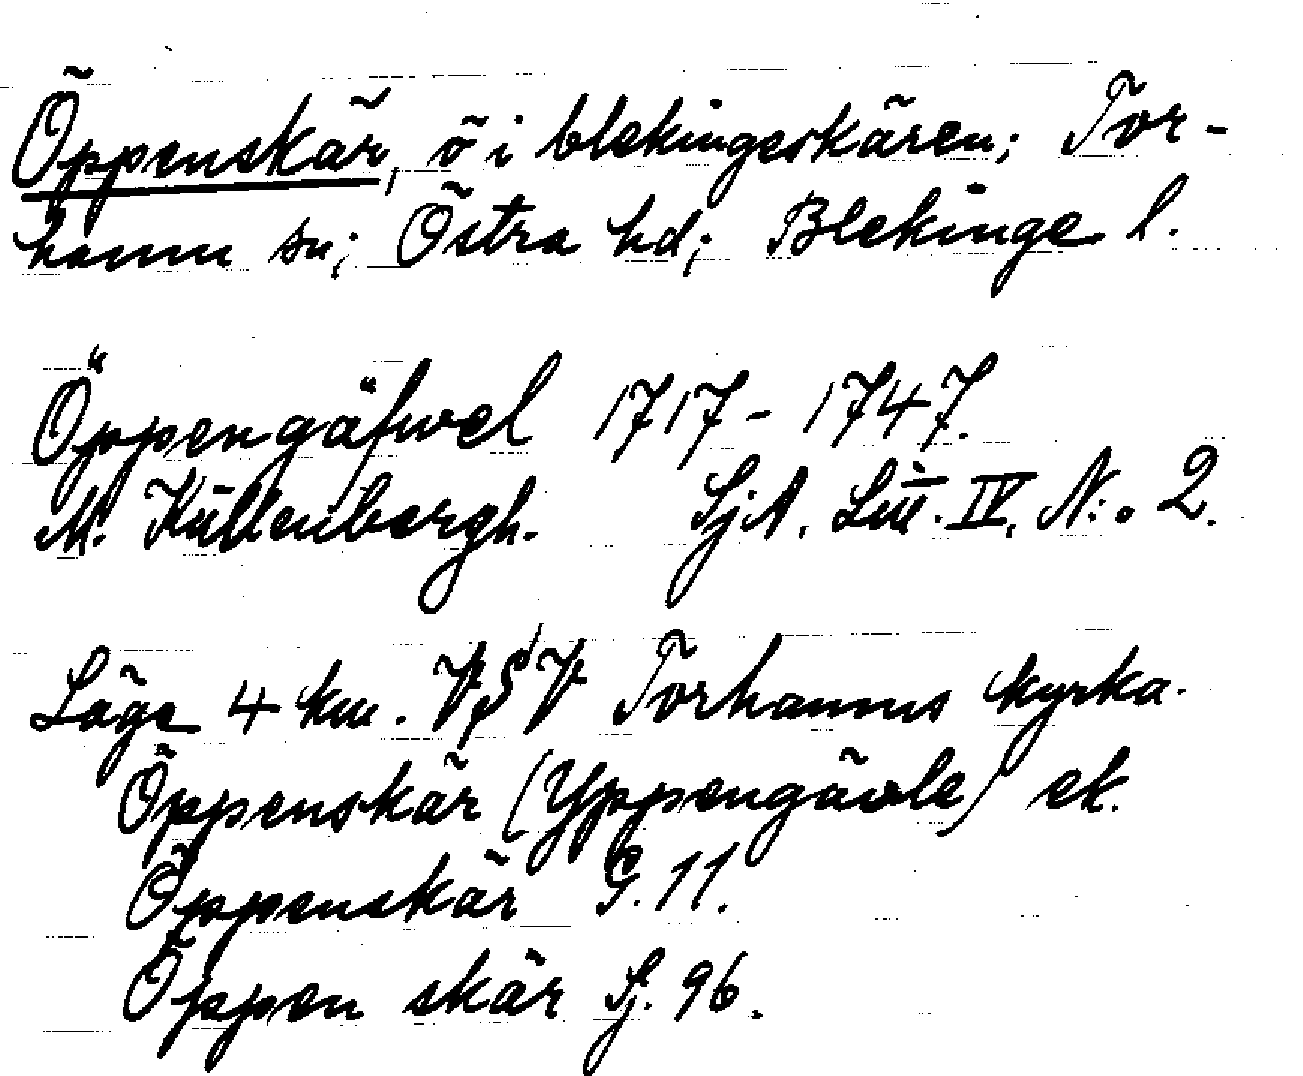 Öppenskär, ö i blekingeskären; Tor-
hamn sn; Östra hd; Blekinge l.
Öppengäfwel 1717-1747.
M. Küllenbergh. SjA. Litt. IV. N:o 2.
Läge 4 km. VSV Torhamns kyrka.
Öppenskär (Yppengävle) ek.
Öppenskär G. 11.
Öppen skär Sj. 96.